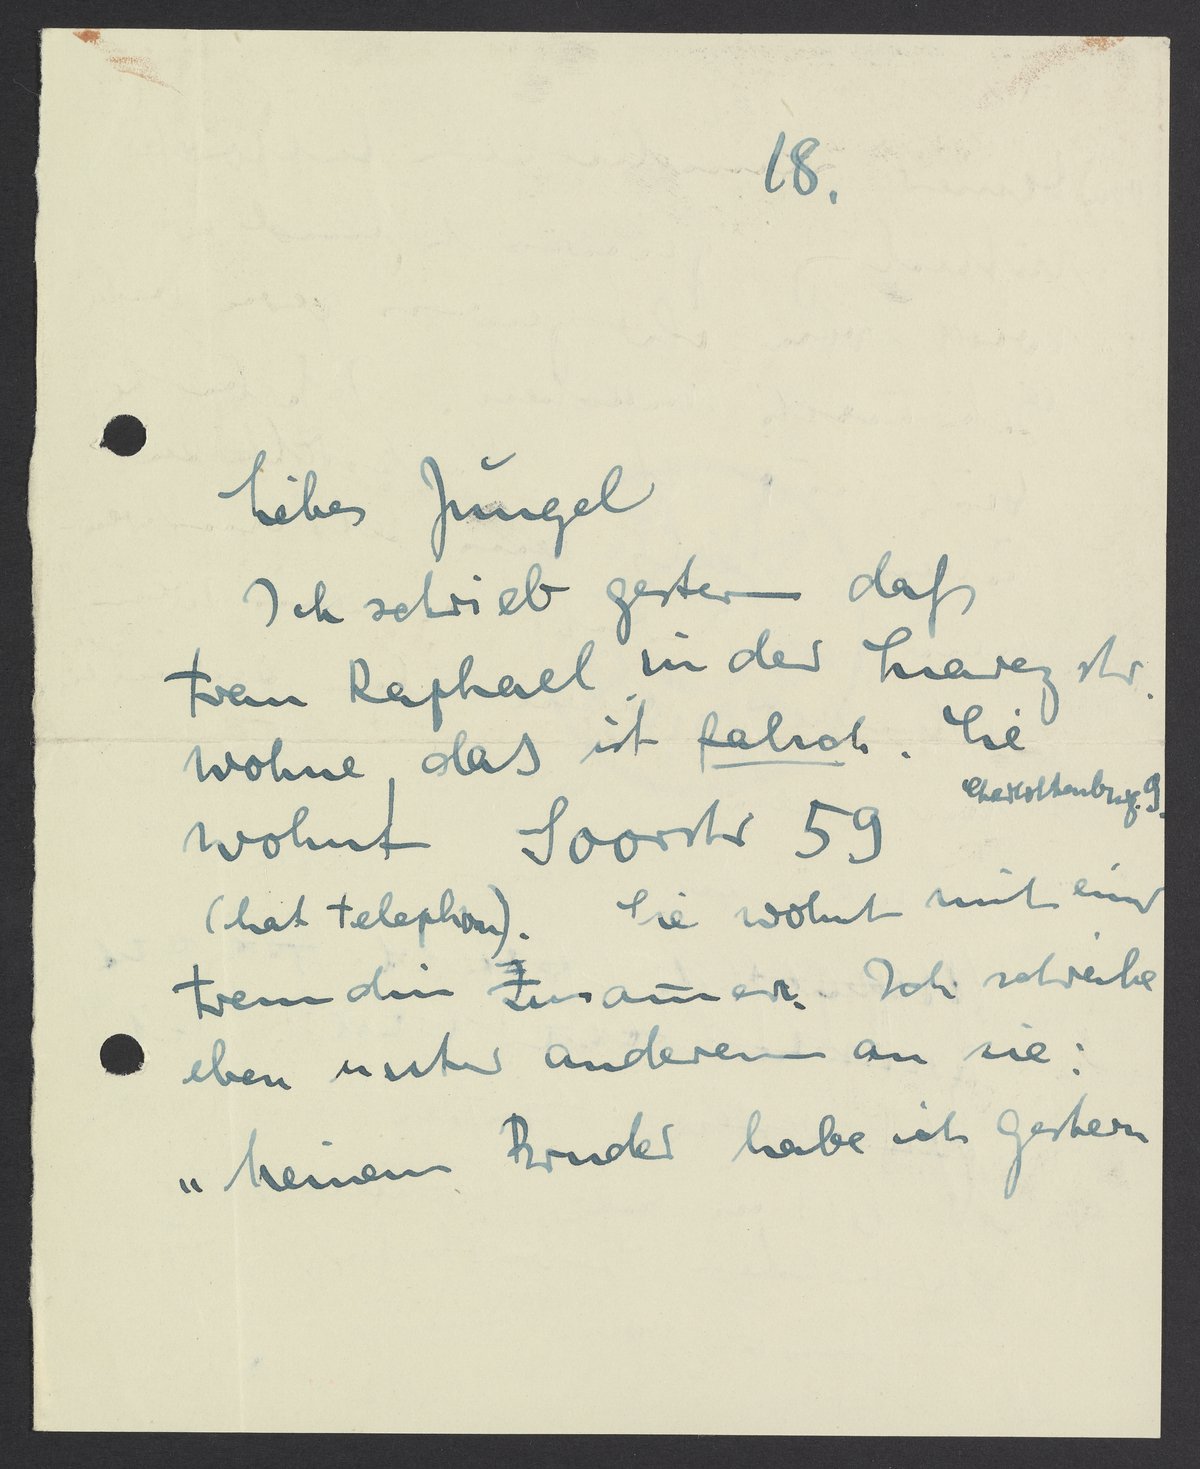 18.
Liebes Jüngel
Ich schrieb gestern daß
Frau Raphael in der Suarezstr.
wohne, das ist falsch. Sie
Charlottenbrg. 9.
wohnt Soorstr 59
(hat Telephon). Sie wohnt mit einer
Freundin Zusam̄en. Ich schreibe
eben unter anderem an sie:
„Meinem Bruder habe ich gestern